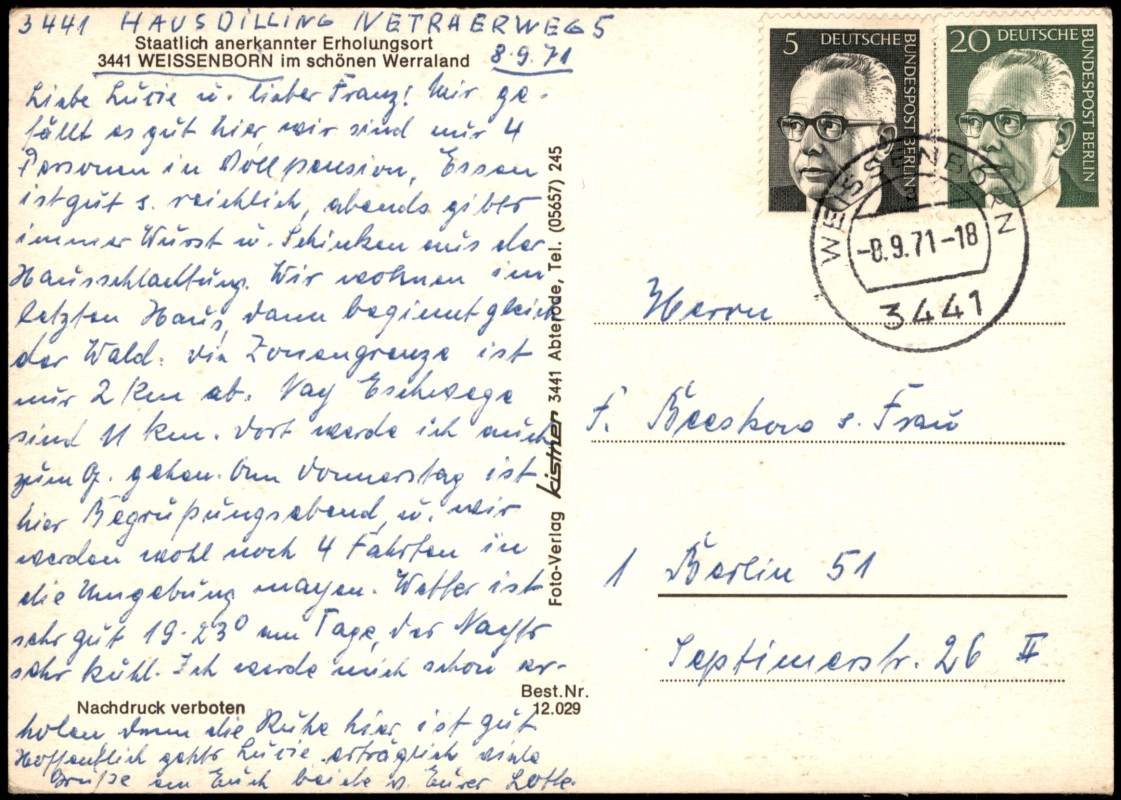 3441 HAUS DILLING NETRAERWEG 5
Staatlich anerkannter Erholungsort
3441 WEISSENBORN im schönen Werraland
8.9.71
Liebe Lucie u. lieber Franz! Mir ge-
fällt es gut hier wir sind nur 4
Personen in Vollpension, Essen
ist gut s. reichlich, abends gibts
immer Wurst u. Schinken aus der
Hausschlachtung. Wir wohnen im
letzten Haus, dann beginnt gleich
der Wald. Die Zonengrenze ist
nur 2 Km ab. Nach Eschwege
sind 11 km. Dort werde ich auch
zum G. gehen. Am Donnerstag ist
hier Begrüßungsabend, u. wir
werden wohl noch 4 Fahrten in
die Umgebung machen. Wetter ist
sehr gut 19-23° am Tage, des Nachts
sehr kühl. Ich werde mich schon er-
holen denn die Ruhe hier ist gut
Hoffentlich gehts Lucie erträglich viele
Grüße an Euch beide v. Eurer Lotte.
Nachdruck verboten
Best.Nr.
12.029
Foto-Verlag kistner 3441 Abterode, Tel. (05657) 245
5 DEUTSCHE BUNDESPOST BERLIN
20 DEUTSCHE BUNDESPOST BERLIN
WEISSENBORN
-8.9.71-18
3441
Herrn
F. Beeskow s. Frau
1 Berlin 51
Septimerstr. 26 II